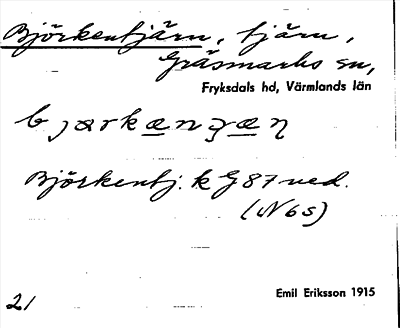 Björkentjärn, tjärn,
Gräsmarks sn,
Fryksdals hd, Värmlands län
bjɔrkænʒæn
Björkentj. k G 87 ned.
(N 6 s)
21
Emil Eriksson 1915